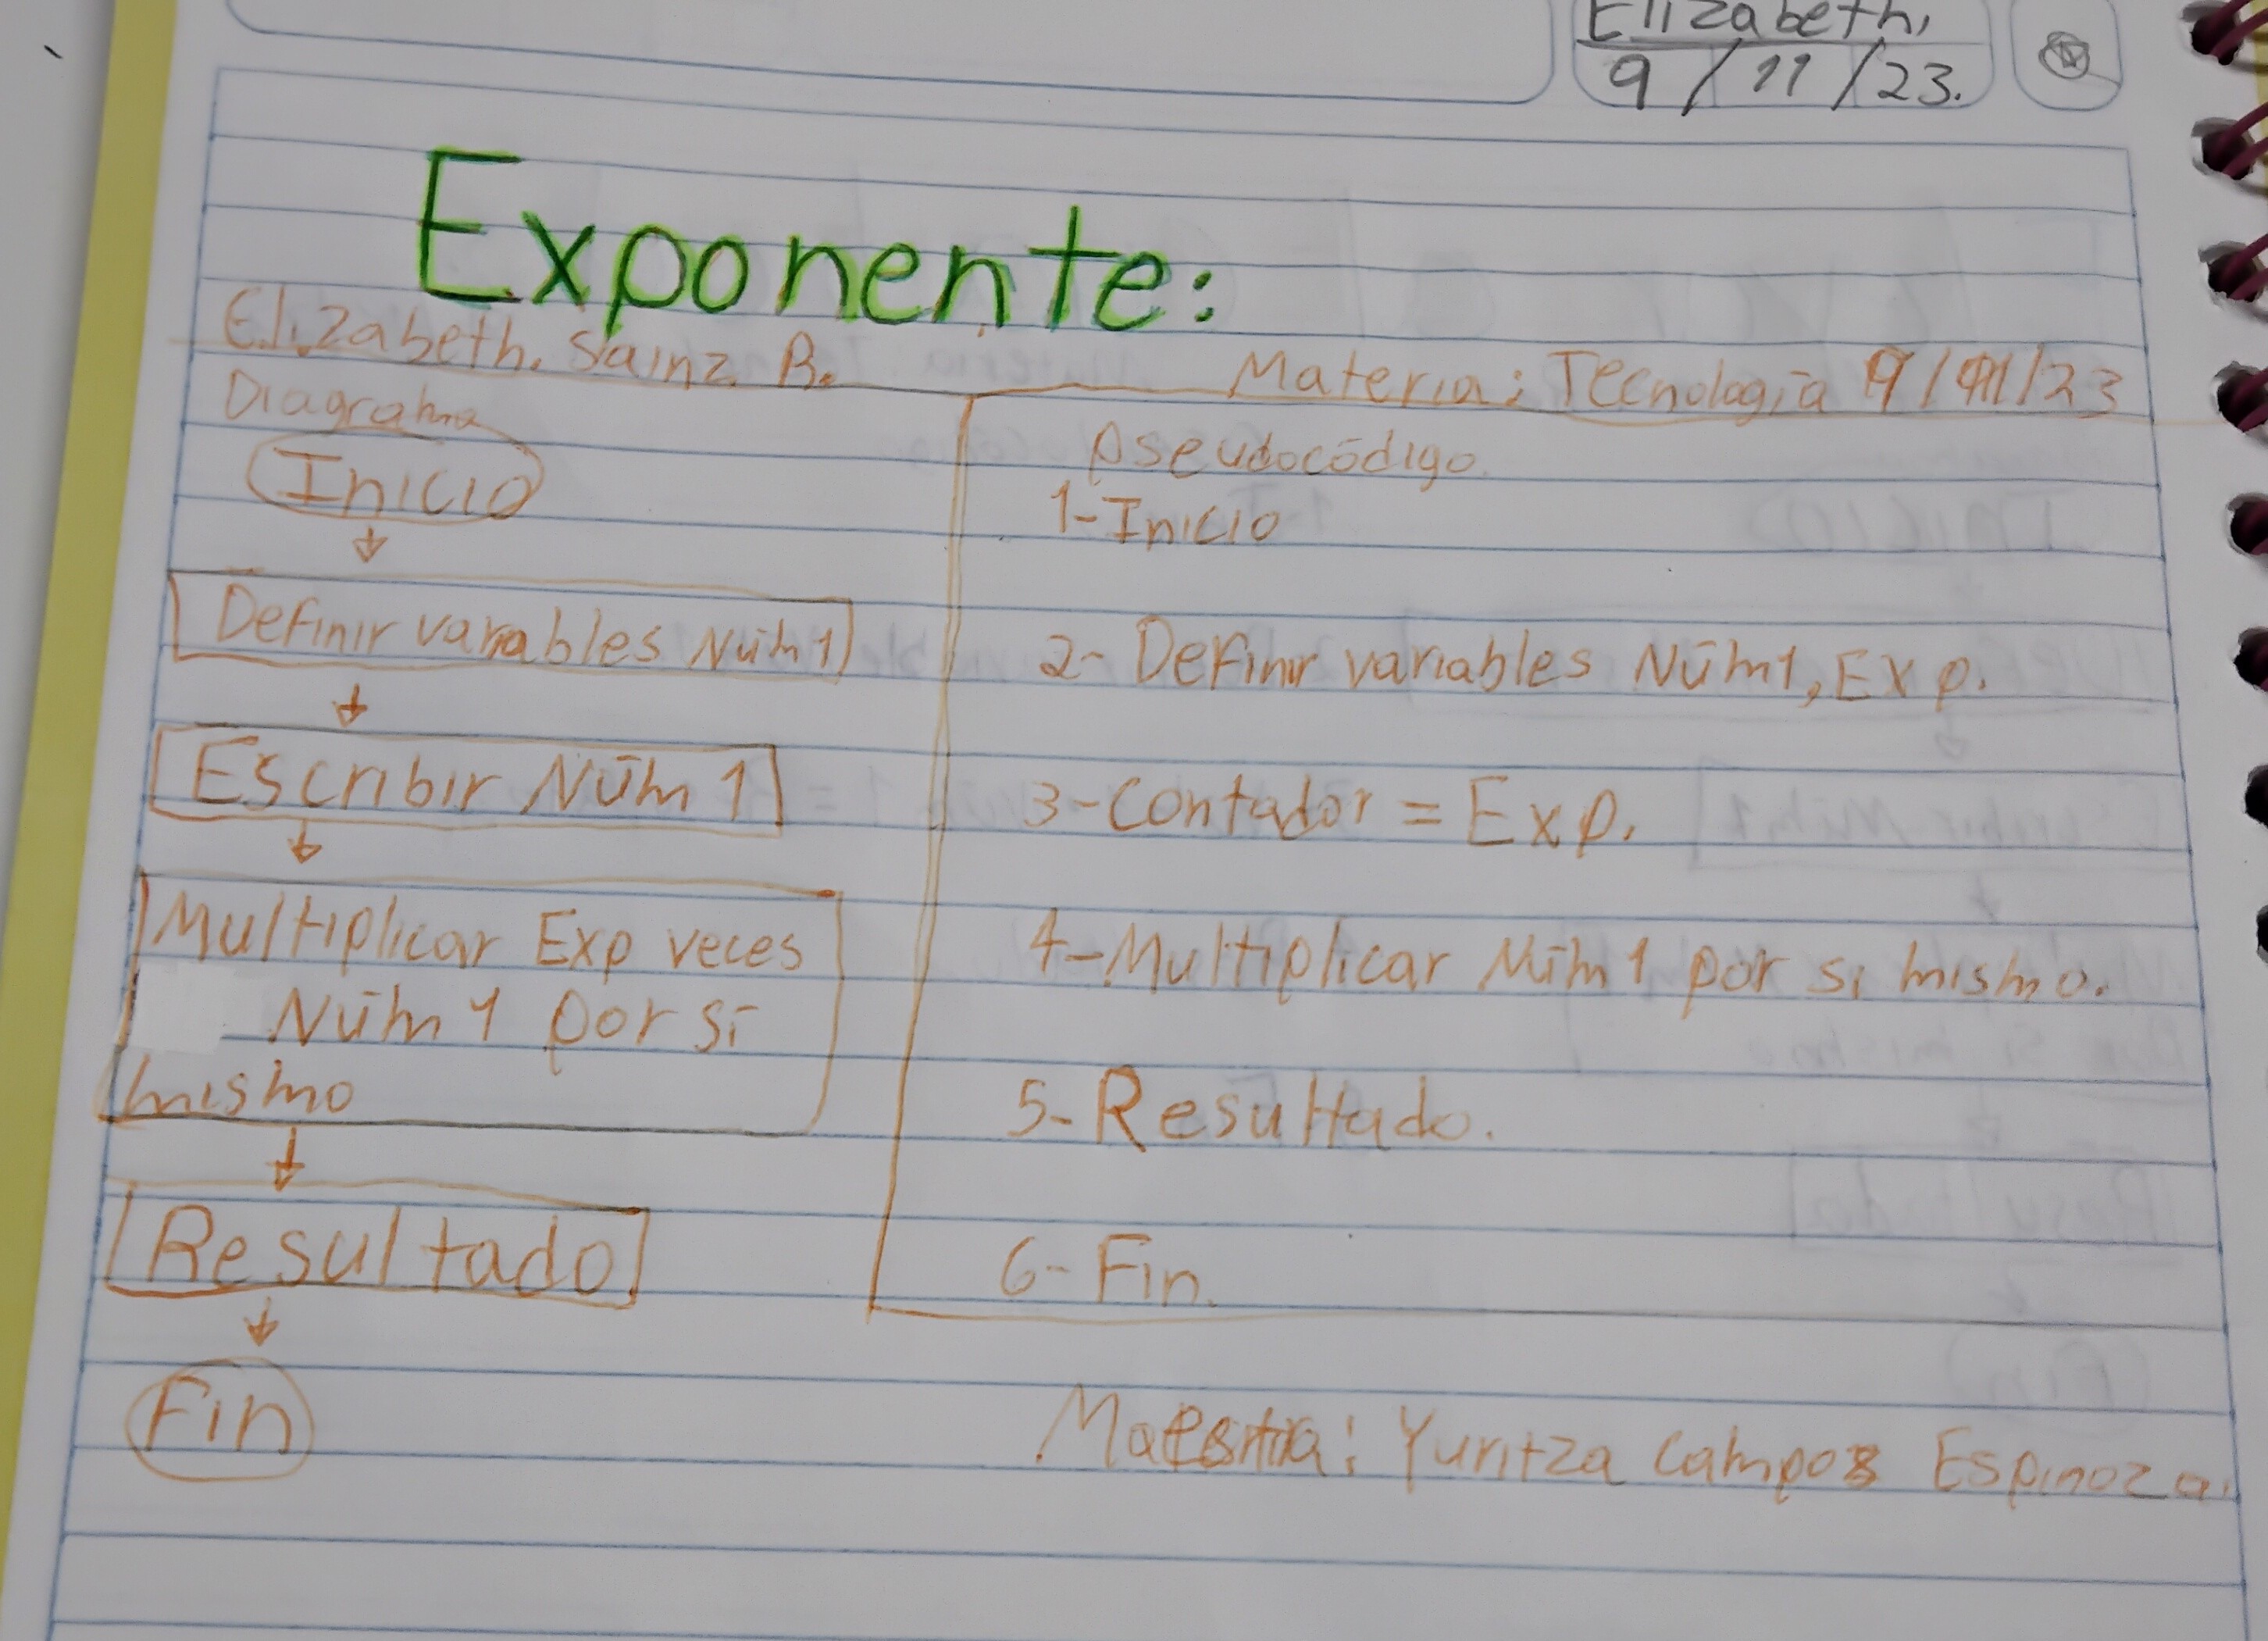 Elizabeth,
9/11/23.
Exponente:
Elizabeth. Sainz B.
Materia: Tecnologia 9/11/23
Diagrama
Inicio
Definir variables Núm1
Escribir Núm 1
Multiplicar Exp veces
Núm 1 por sí
mismo
Resultado
Fin
Pseudocódigo.
1-Inicio
2- Definir variables Núm1, Exp.
3-Contador = Exp.
4-Multiplicar Núm 1 por si mismo.
5-Resultado.
6-Fin.
Maestra: Yuritza Campos Espinoza.